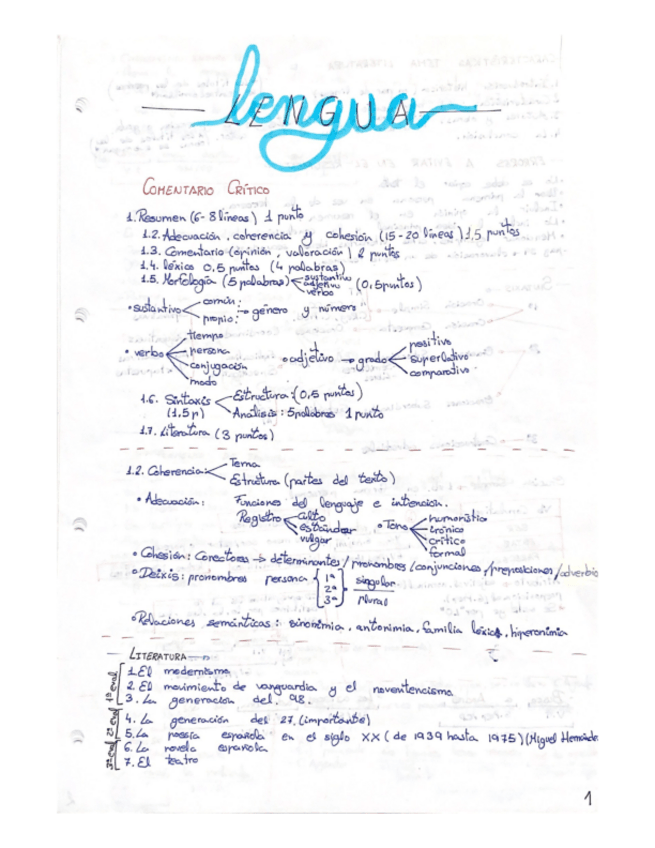 lengua
LENGUA
COMENTARIO CRÍTICO
1. Resumen (6-8 líneas) 1 punto
1.2. Adecuación, coherencia y cohesión (15-20 líneas) 1,5 puntos
1.3. Comentario (opinión, valoración) 2 puntos
1.4. léxico 0,5 puntos (4 palabras)
1.5. Morfología (5 palabras) sustantivo adjetivo verbo (0,5 puntos)
• sustantivo común: propio: → género y número
• verbo tiempo persona conjugación modo
• adjetivo → grado positivo superlativo comparativo
1.6. Sintaxis (1,5 p) Estructura: (0,5 puntos)
Análisis: 5 palabras 1 punto
1.7. Literatura (3 puntos)
1.2. Coherencia Tema
Estructura (partes del texto)
• Adecuación: Funciones del lenguaje e intención.
Registro culto estándar vulgar
• Tono humorístico irónico crítico formal
• Cohesión: Conectores → determinantes / pronombres / conjunciones / preposiciones / adverbio
• Deixis: pronombres persona 1ª 2ª 3ª singular plural
• Relaciones semánticas: sinonimia, antonimia, familia léxica, hiperonimia
LITERATURA
1ª eval
1. El modernismo
2. El movimiento de vanguardia y el noventencismo
3. La generación del 98.
2ª eval
4. La generación del 27. (importante)
5. La poesía española en el siglo XX (de 1939 hasta 1975) (Miguel Hernánde
3ª eval
6. La novela española
7. El teatro
1